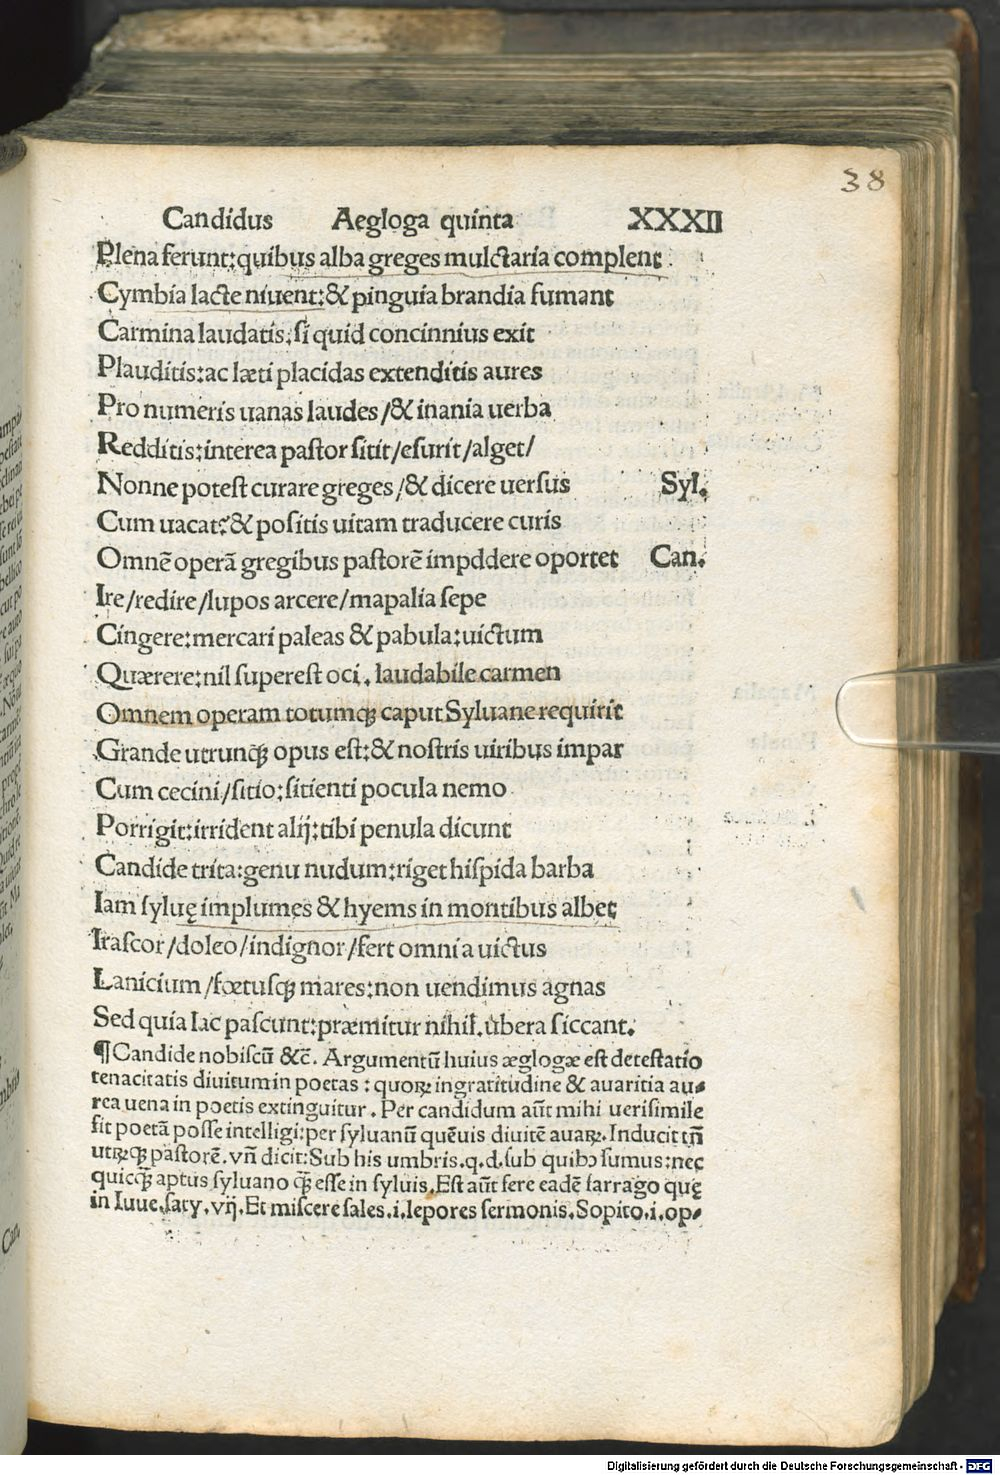 38
Candidus Aegloga quinta XXXII
Plena ferunt:quibus alba greges mulctraria complent
Cymbia lacte niuent:& pinguia brandia fumant
Carmina laudatis:si quid concinnius exit
Plauditis:ac læti placidas extenditis aures
Pro numeris uanas laudes/& inania uerba
Redditis:interea pastor sitit/esurit/alget/
Nonne potest curare greges/& dicere uersus Syl.
Cum uacat?& positis uitam traducere curis
Omnē operā gregibus pastorē impddere oportet Can.
Ire/redire/lupos arcere/mapalia sepe
Cingere:mercari paleas & pabula:uictum
Quærere:nil superest oci. laudabile carmen
Omnem operam totumqꝫ caput Syluane requirit
Grande utrunqꝫ opus est:& nostris uiribus impar
Cum cecini/sitio:sitienti pocula nemo
Porrigit:irrident alij:tibi penula dicunt
Candide trita:genu nudum:riget hispida barba
Iam syluę implumes & hyems in montibus albet
Irascor/doleo/indignor/fert omnia uictus
Lanicium/fœtusqꝫ mares:non uendimus agnas
Sed quia lac pascunt:præmitur nihil.ubera siccant.
¶Candide nobiscū &c̄. Argumentū huius æglogæ est detestatio
tenacitatis diuitum in poetas : quoꝝ ingratitudine & auaritia au-
rea uena in poetis extinguitur. Per candidum aūt mihi uerisimile
fit poetā posse intelligi:per syluanū quēuis diuitē auaꝝ. Inducit tn̄
utꝝqꝫ pastorē. vn̄ dicit:Sub his umbris.q.d.sub quibꝰ sumus:nec
quicqꝫ̄ aptus syluano qꝫ̄ esse in syluis.Est aūt fere eadē farrago quę
in Iuue.saty.vij.Et miscere sales.i.lepores sermonis.Sopito.i.op-
Digitalisierung gefördert durch die Deutsche Forschungsgemeinschaft - DFG